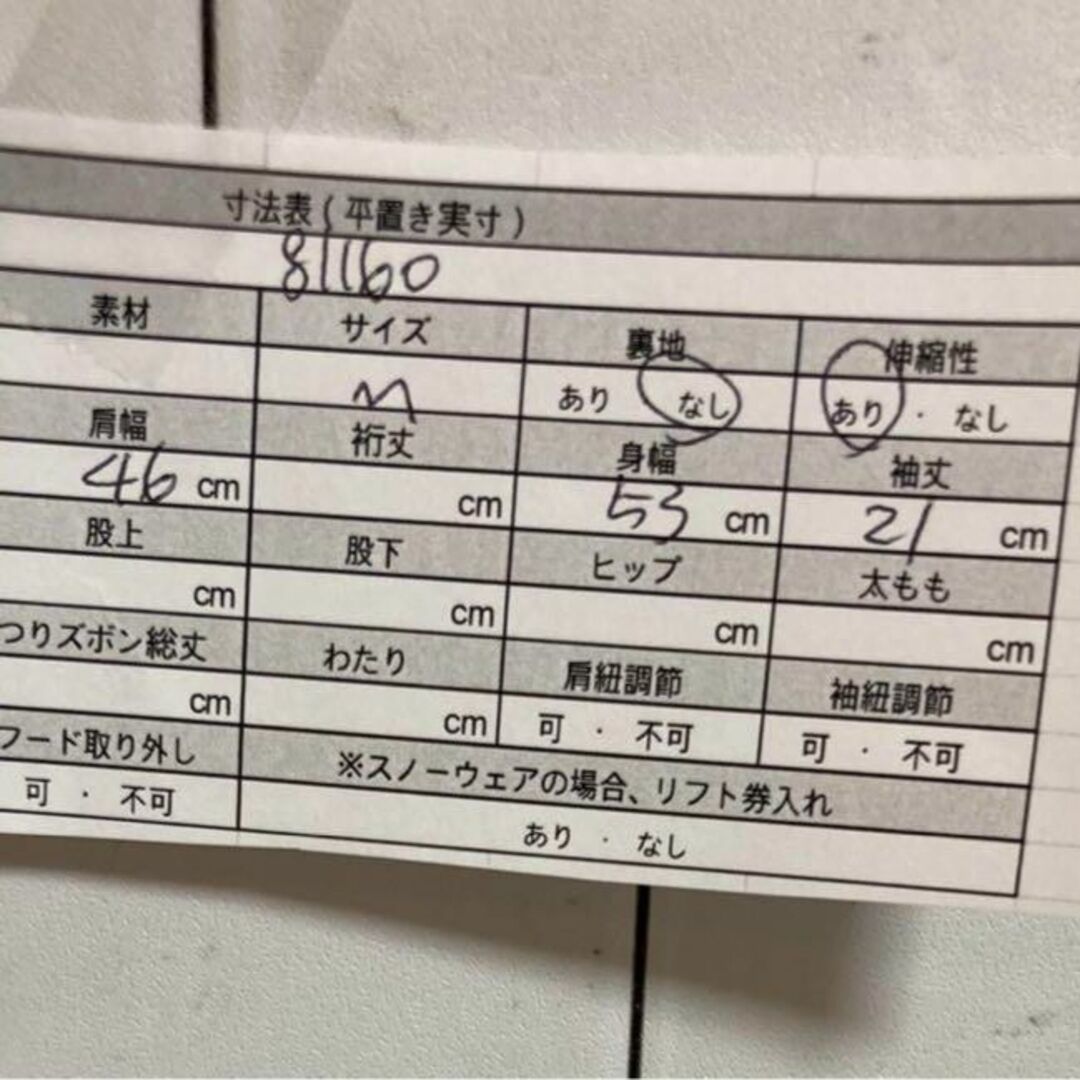 寸法表(平置き実寸)
81160
素材 サイズ 裏地 伸縮性
M あり なし あり・なし
肩幅 裄丈 身幅 袖丈
46 cm cm 53 cm 21 cm
股上 股下 ヒップ 太もも
cm cm cm cm
つりズボン総丈 わたり 肩紐調節 袖紐調節
cm cm 可・不可 可・不可
フード取り外し ※スノーウェアの場合、リフト券入れ
可・不可 あり・なし